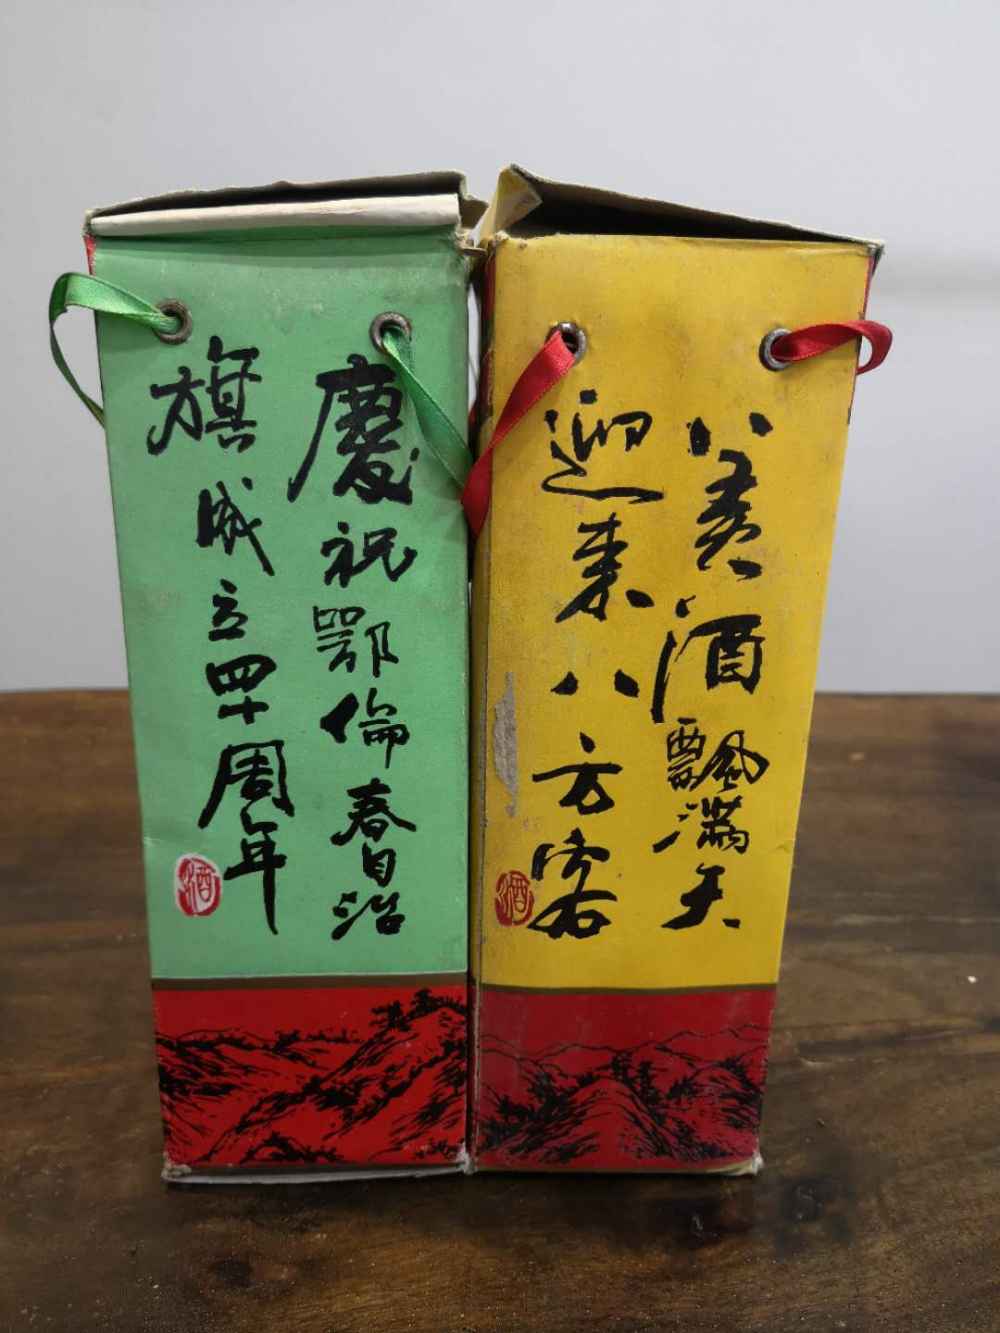 慶祝鄂倫春自治
旗成立四十周年
酒
美酒飄滿天
迎来八方客
酒